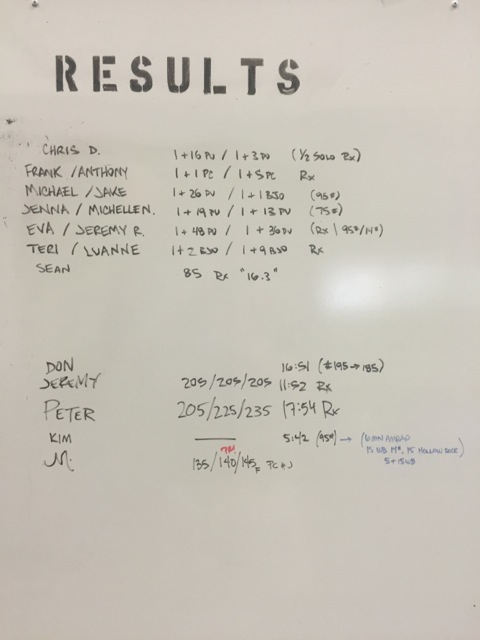 RESULTS
CHRIS D. 1+16 PU / 1+3 PU (1/2 SOLO Rx)
FRANK / ANTHONY 1+1 PC / 1+5 PC Rx
MICHAEL / JAKE 1+26 PU / 1+1 BJO (95#)
JENNA / MICHELLE N. 1+19 PU / 1+13 PU (75#)
EVA / JEREMY R. 1+48 PU / 1+36 PU (Rx | 95#/14#)
TERI / LUANNE 1+2 BJO / 1+9 BJO Rx
SEAN 85 Rx "16.3"
DON 16:51 (#195→185)
JEREMY 205/205/205 11:52 Rx
PETER 205/225/235 17:54 Rx
KIM — 5:42 (95#) → (6 MIN AMRAP
15 WB 14#, 15 HOLLOW ROCK)
5+15 WB
M. PR
135/140/145 F PC+J